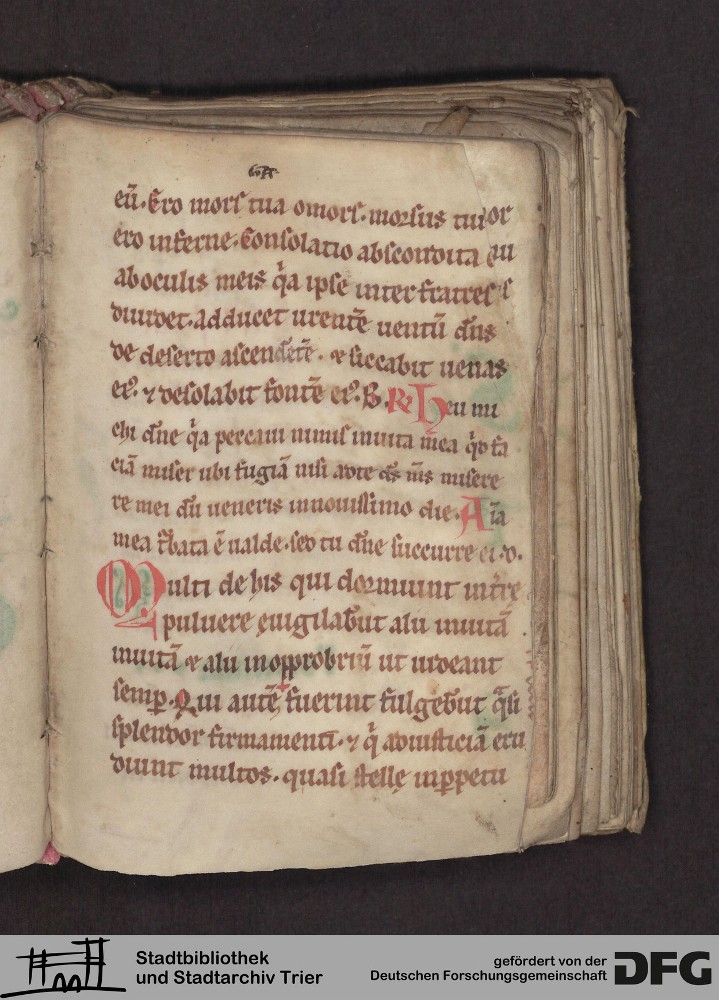 eū. Ero morſ tua o morſ. morsus tuuſ
ero inferne. Conſolatio abſcondita
ab oculis meis q̄a ipſe inter fratreſ
diuidet. adducet urentē uentū dn̄s
de deſerto aſcendētē. ⁊ ſiccabit uenas
eꝰ. ⁊ deſolabit fontē eꝰ. B. R̄ Heu mi
chi dn̄e q̄a peccaui nimiſ in uita mea qͥd fa
ciā miſer ubi fugiā niſi ad te ds̄ ms̄ miſere
re mei dū ueneris in nouiſſimo die. Aīa
mea t̄bata ē ualde. ſed tu dn̄e ſuccurre ei. v.
Multi de his qui dormiunt in tr̄e
puluere euigilabūt alii in uitā
inuitā ⁊ alii in opprobriū ut uideant
ſemp̲. Qui autē fuerint fulgebūt q̄ſi
ſplendor firmamenti. ⁊ q̄ ad iuſticiā eru
diunt multos. quaſi ſtellę in p̲petu
Stadtbibliothek
und Stadtarchiv Trier
gefördert von der
Deutschen Forschungsgemeinschaft
DFG